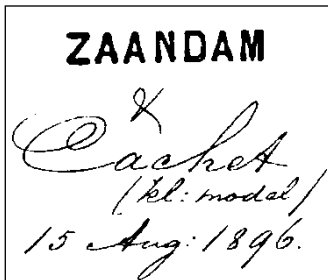 ZAANDAM
&
Cachet
(kl: model)
15 Aug: 1896.